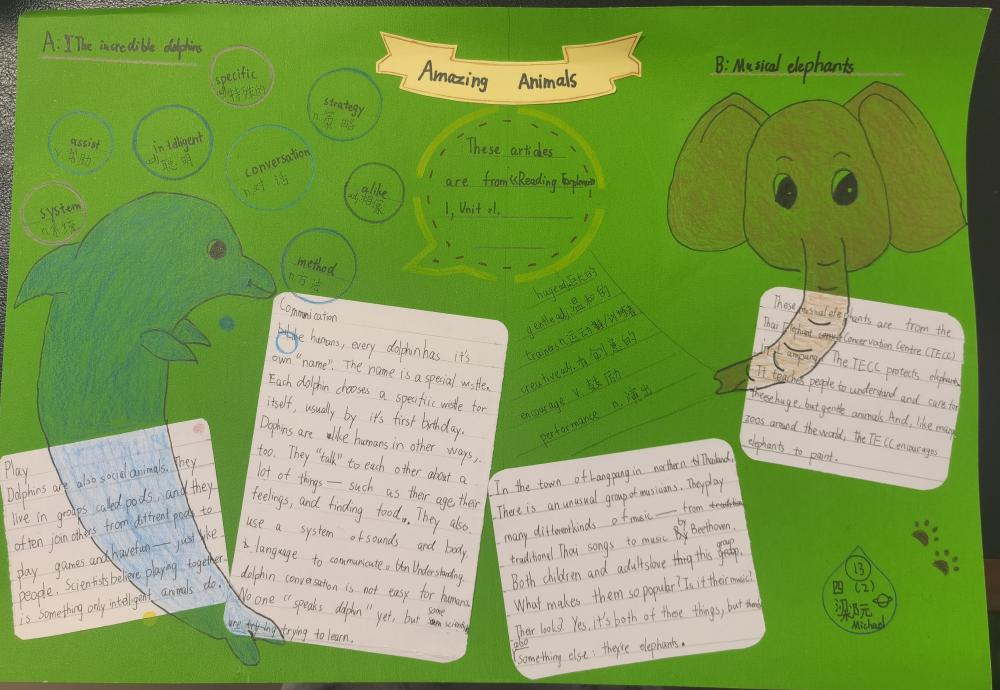 A: The incredible dolphins
Amazing Animals
B: Musical elephants
specific
adj.特殊的
strategy
n.策略
assist
v.帮助
intelligent
adj.聪明
conversation
n.对话
alike
adj.相像
system
n.系统
method
n.方法
These articles
are from《Reading Explorer》
1, Unit 1.
huge adj.巨大的
gentle adj.温和的
trainers n.运动鞋/训练者
creative adj.有创意的
encourage v.鼓励
performance n.演出
Communication
like humans, every dolphin has it's
own "name". The name is a special wistle.
Each dolphin chooses a specific wistle for
itself, usually by it's first birthday.
Dophins are alike humans in other ways,
too. They "talk" to each other about a
lot of things — such as their age, their
feelings, and finding food. They also
use a system of sounds and body
language to communicate. Understanding
dolphin conversation is not easy for humans.
No one "speaks dolphin" yet, but some scientists
are trying to learn.
Play
Dolphins are also social animals. They
live in groups called pods, and they
often join others from diffrent pods to
play games and have fun — just like
people. Scientists believe playing together
is something only intelligent animals do.
In the town of Langpang in northern Thailand,
There is an unusual group of musicians. They play
many different kinds of music — from
traditional Thai songs to music by Beethoven.
Both children and adults love this group.
What makes them so popular? Is it their music?
Their looks? Yes, it's both of these things, but
also
something else: they're elephants.
These musical elephants are from the
Thai Elephant Conservation Centre (TECC)
in Lampang. The TECC protects elephants.
It teaches people to understand and care for
these huge, but gentle animals. And, like many
zoos around the world, the TECC encourages
elephants to paint.
13
四(2)
Michael